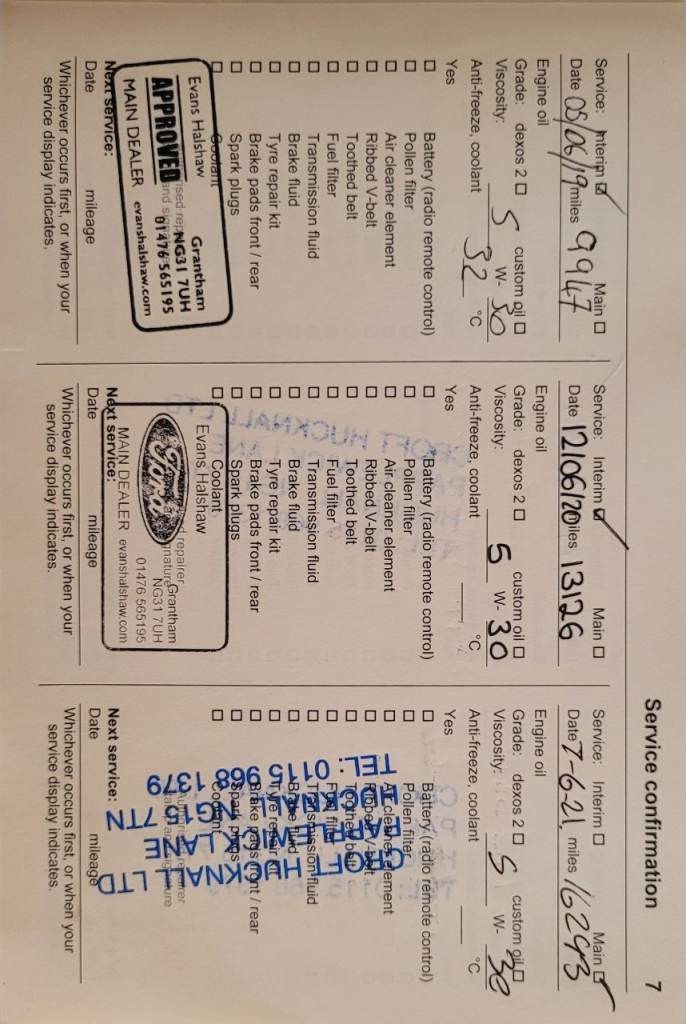 Service confirmation
7
Service: Interim Main
Date 05/06/19 miles 9947
Engine oil
Grade: dexos 2 custom oil
Viscosity: 5 W- 30
Anti-freeze, coolant 32 °C
Yes
Battery (radio remote control)
Pollen filter
Air cleaner element
Ribbed V-belt
Toothed belt
Fuel filter
Transmission fluid
Brake fluid
Tyre repair kit
Brake pads front / rear
Spark plugs
Coolant
Evans Halshaw Grantham
APPROVED NG31 7UH
01476 565195
MAIN DEALER evanshalshaw.com
Next service:
Date mileage
Whichever occurs first, or when your
service display indicates.
Service: Interim Main
Date 12/06/20 miles 13126
Engine oil
Grade: dexos 2 custom oil
Viscosity: 5 W- 30
Anti-freeze, coolant °C
Yes
Battery (radio remote control)
Pollen filter
Air cleaner element
Ribbed V-belt
Toothed belt
Fuel filter
Transmission fluid
Brake fluid
Tyre repair kit
Brake pads front / rear
Spark plugs
Coolant
Evans Halshaw
repairer
Ford Grantham
NG31 7UH
01476 565195
MAIN DEALER evanshalshaw.com
Next service:
Date mileage
Whichever occurs first, or when your
service display indicates.
Service: Interim Main
Date 7-6-21 miles 16293
Engine oil
Grade: dexos 2 custom oil
Viscosity: 5 W- 30
Anti-freeze, coolant °C
Yes
Battery (radio remote control)
Pollen filter
Air cleaner element
Ribbed V-belt
Toothed belt
Fuel filter
Transmission fluid
Brake fluid
Tyre repair kit
Brake pads front / rear
Spark plugs
Coolant
CROFT HUCKNALL LTD
LANE
G15 7TN
TEL: 0115 968 1379
Next service:
Date mileage
Whichever occurs first, or when your
service display indicates.